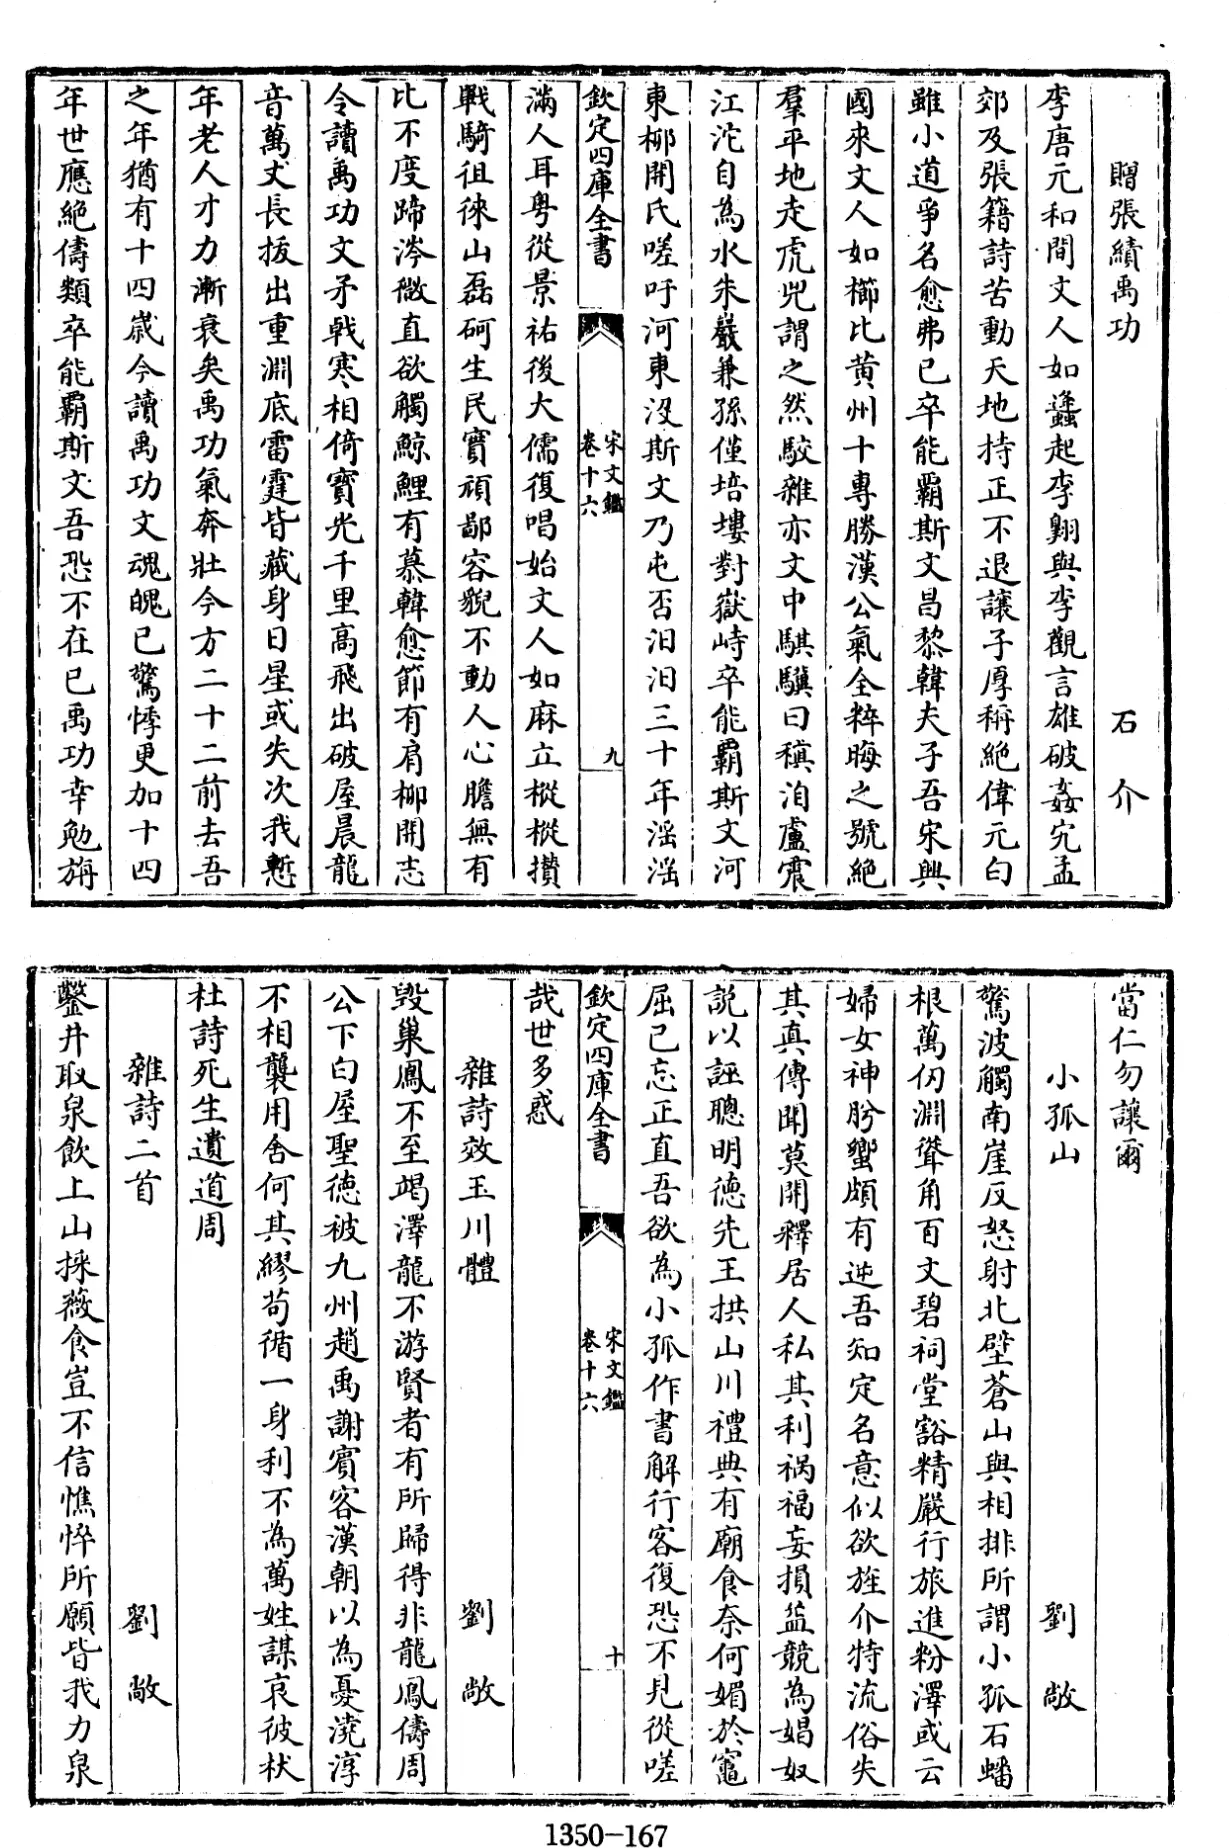 贈張績禹功　石介
李唐元和間文人如蠭起李翺與李觀言雄破姦宄孟
郊及張籍詩苦動天地持正不退讓子厚稱絶偉元白
雖小道爭名愈弗已卒能霸斯文昌黎韓夫子吾宋興
國來文人如櫛比黄州十專勝漢公氣全粹晦之號絶
羣平地走虎兕謂之然駮雜亦文中騏驥曰稹洎盧震
江沱自為水朱巖兼孫僅培塿對嶽峙卒能霸斯文河
東栁開氏嗟吁河東沒斯文乃屯否汨汨三十年滛滛
欽定四庫全書　宋文鑑卷十六　九
滿人耳粤從景祐後大儒復唱始文人如麻立樅樅攢
戰騎徂徠山磊砢生民實頑鄙容貌不動人心膽無有
比不度蹄涔微直欲觸鯨鯉有慕韓愈節有肩栁開志
今讀禹功文矛戟寒相倚寶光千里高飛出破屋晨龍
音萬丈長抜出重淵底雷霆皆藏身日星或失次我慙
年老人才力漸衰矣禹功氣奔壯今方二十二前去吾
之年猶有十四嵗今讀禹功文魂魄已驚悸更加十四
年世應絶儔類卒能霸斯文吾恐不在已禹功幸勉旃
當仁勿讓爾
小孤山　劉敞
驚波觸南崖反怒射北壁蒼山與相排所謂小孤石蟠
根萬仭淵聳角百丈碧祠堂豁精嚴行旅進粉澤或云
婦女神肹蠁頗有迹吾知定名意似欲旌介特流俗失
其真傳聞莫開釋居人私其利禍福妄損益競為娼奴
説以誣聰明德先王拱山川禮典有廟食奈何媚於竈
屈己忘正直吾欲為小孤作書解行客復恐不見從嗟
欽定四庫全書　宋文鑑卷十六　十
哉世多惑
雜詩效玉川體　劉敞
毀巢鳳不至竭澤龍不游賢者有所歸得非龍鳳儔周
公下白屋聖德被九州趙禹謝賓客漢朝以為憂澆淳
不相襲用舎何其繆苟循一身利不為萬姓謀哀彼杕
杜詩死生遺道周
雜詩二首　劉敞
鑿井取泉飲上山採薇食豈不信憔悴所願皆我力泉
1350-167